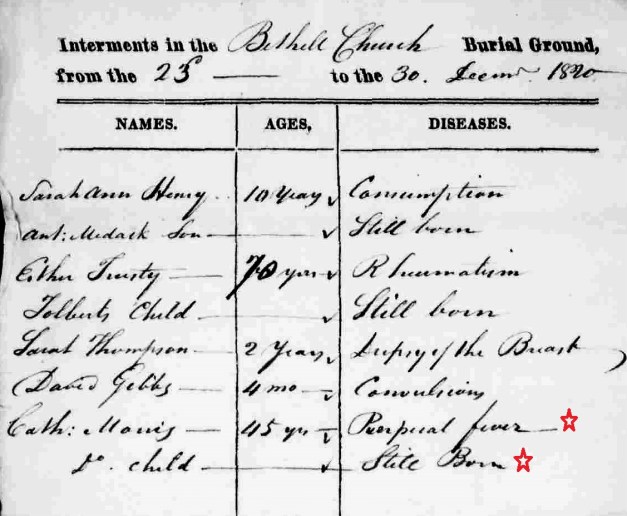 Interments in the Bethell Church Burial Ground,
from the 23 — to the 30. Decmr. 1820
NAMES. AGES, DISEASES.
Sarah Ann Henry 10 Years Consumption
Ant: Medack Son — Still born
Esther Trusty — 70 yrs Rheumatism
Tolberts Child — Still born
Sarah Thompson — 2 Years Dropsy of the Breast
David Gibbs — 4 mo — Convulsions
Cath: Morris — 45 yrs Puerpual fever
Do. child — Still Born